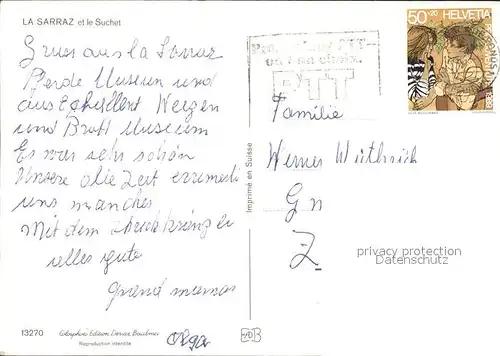 LA SARRAZ et le Suchet
50+20 HELVETIA
PTT
Gruss aus la Sarraz
Pferde Museum und
aus Echallens Weizen
und Brott Museum
Es war sehr schön
Unsere alte Zeit
uns manches
Mit dem
alles gute
grand maman
Olga
Familie
Werner Wüthrich
G n
Z
privacy protection
Datenschutz
Imprimé en Suisse
13270 Edition Dériaz Baulmes
Reproduction interdite